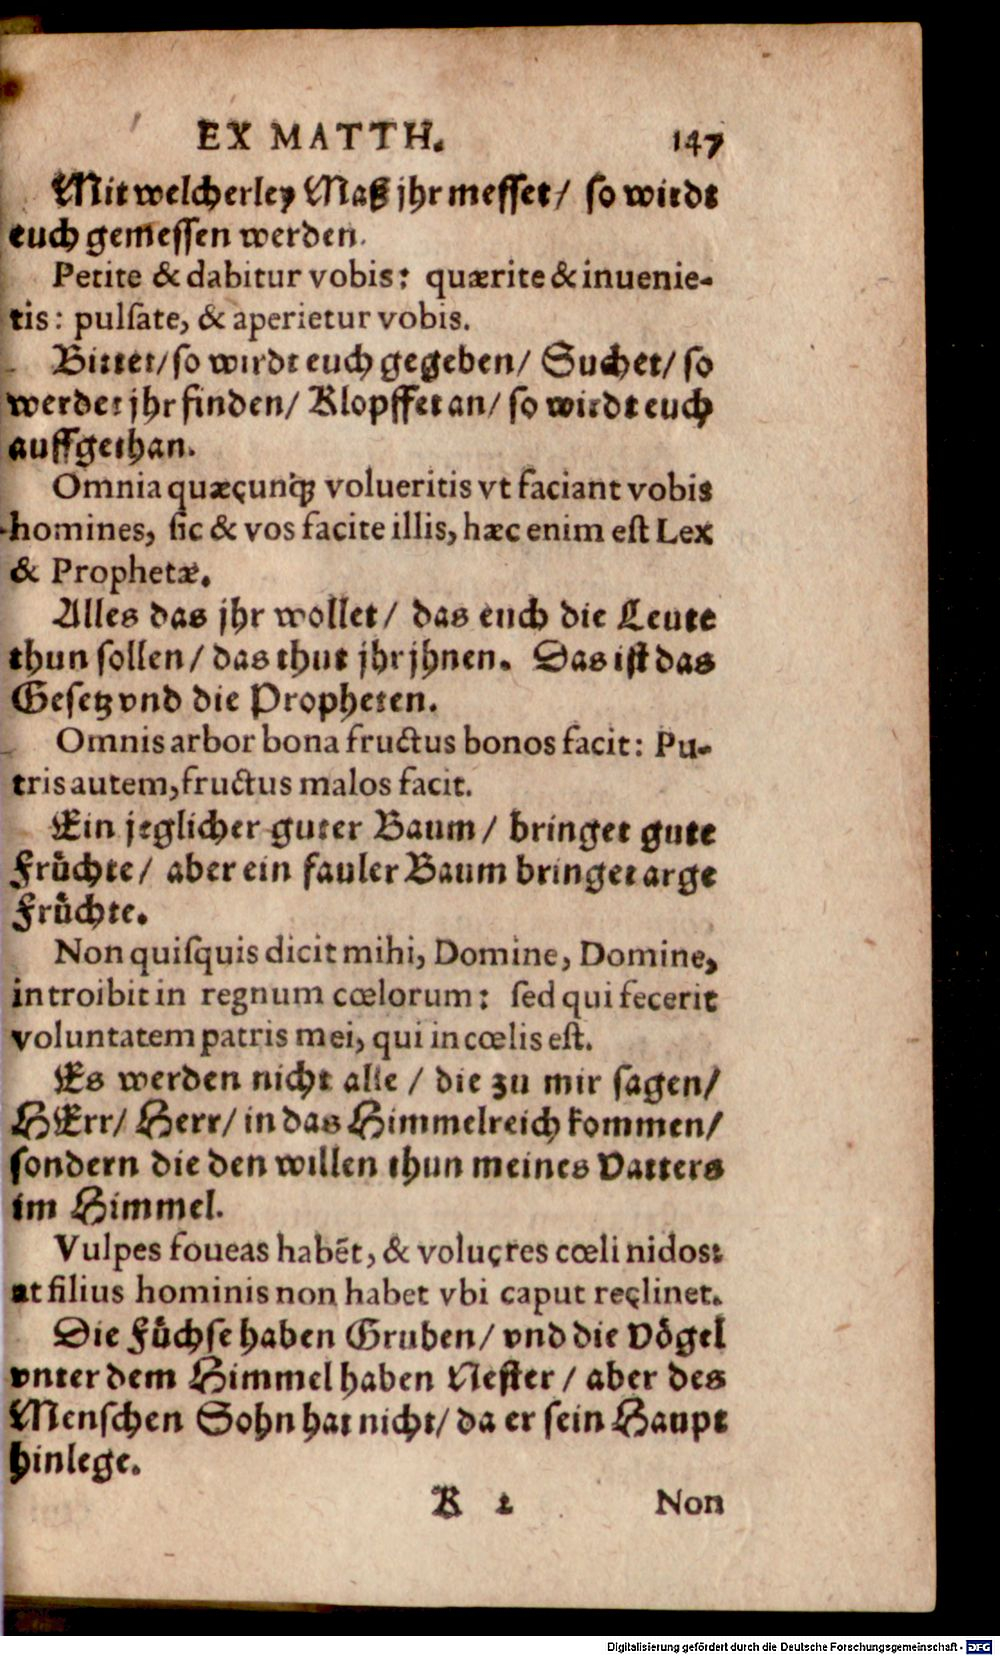 EX MATTH. 147
Mit welcherley Maß jhr messet/ so wirdt
euch gemessen werden.
Petite & dabitur vobis: quærite & inuenie-
tis: pulsate, & aperietur vobis.
Bittet/ so wirdt euch gegeben/ Suchet/ so
werdet jhr finden/ Klopffet an/ so wirdt euch
auffgethan.
Omnia quæcunq; volueritis vt faciant vobis
homines, sic & vos facite illis, hæc enim est Lex
& Prophetæ.
Alles das jhr wollet/ das euch die Leute
thun sollen/ das thut jhr jhnen. Das ist das
Gesetz vnd die Propheten.
Omnis arbor bona fructus bonos facit: Pu-
tris autem, fructus malos facit.
Ein jeglicher guter Baum/ bringet gute
Früchte/ aber ein fauler Baum bringet arge
Früchte.
Non quisquis dicit mihi, Domine, Domine,
introibit in regnum cœlorum: sed qui fecerit
voluntatem patris mei, qui in cœlis est.
Es werden nicht alle/ die zu mir sagen/
HErr/ Herr/ in das Himmelreich kommen/
sondern die den willen thun meines Vatters
im Himmel.
Vulpes foueas habēt, & volucres cœli nidos:
at filius hominis non habet vbi caput reclinet.
Die Füchse haben Gruben/ vnd die Vögel
vnter dem Himmel haben Nester/ aber des
Menschen Sohn hat nicht/ da er sein Haupt
hinlege.
K 2 Non
Digitalisierung gefördert durch die Deutsche Forschungsgemeinschaft - DFG